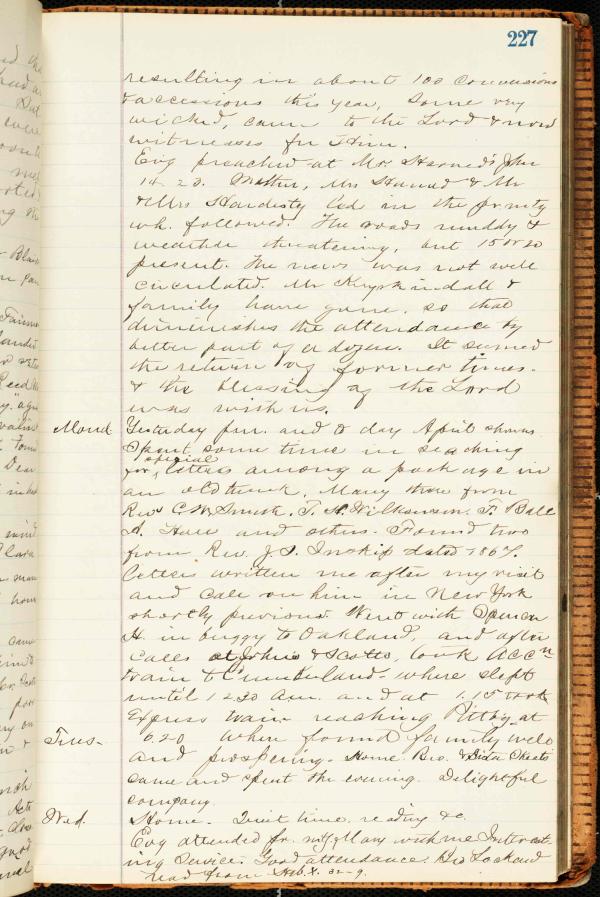 227
resulting in about 100 Conversions
& accessions this year, Some very
wicked, came to the Lord & now
witnesses for Him.
Evg preached at Mr. Harned's John
14-23. Mother, Mrs Harned & Mr
& Mrs Hardisty led in the pr. mtg
wh. followed. The roads muddy &
weather threatening, but 15 or 20
present. The news was not well
circulated. Mr Kuykindall &
family have gone, so that
diminishes the attendance by
better part of a dozen. It seemed
the return of former times.
& the blessing of the Lord
was with us.
Mond Yesterday P.M. and to day April showers
Spent some time in seaching
for special letters among a package in
an old trunk. Many there from
Revs C. M. Smith. T. H. Wilkinson. T. Ball
A. and others. Found two
from Rev. J. S. Inskip dated
letter written me after my visit
and call on him in New York
shortly previous. Went with Spencer
H. in buggy to Oakland, and after
calls at Johns & Scotts, took Accn
train to Cumberland - where slept
until 12.30 A.m. and at 1.15 took
Express train reaching Pittbg at
Tues. 6.20 where found family well
and prospering. Home. Bro. & Sister Cheets
came and spent the evening. Delightful
company.
Wed. Home. Quiet time, reading &c.
Evg attended pr. mtg, Mary with me Interest-
ing Service. Good attendance. Bro Lockard
read from Heb. X. 32-9.